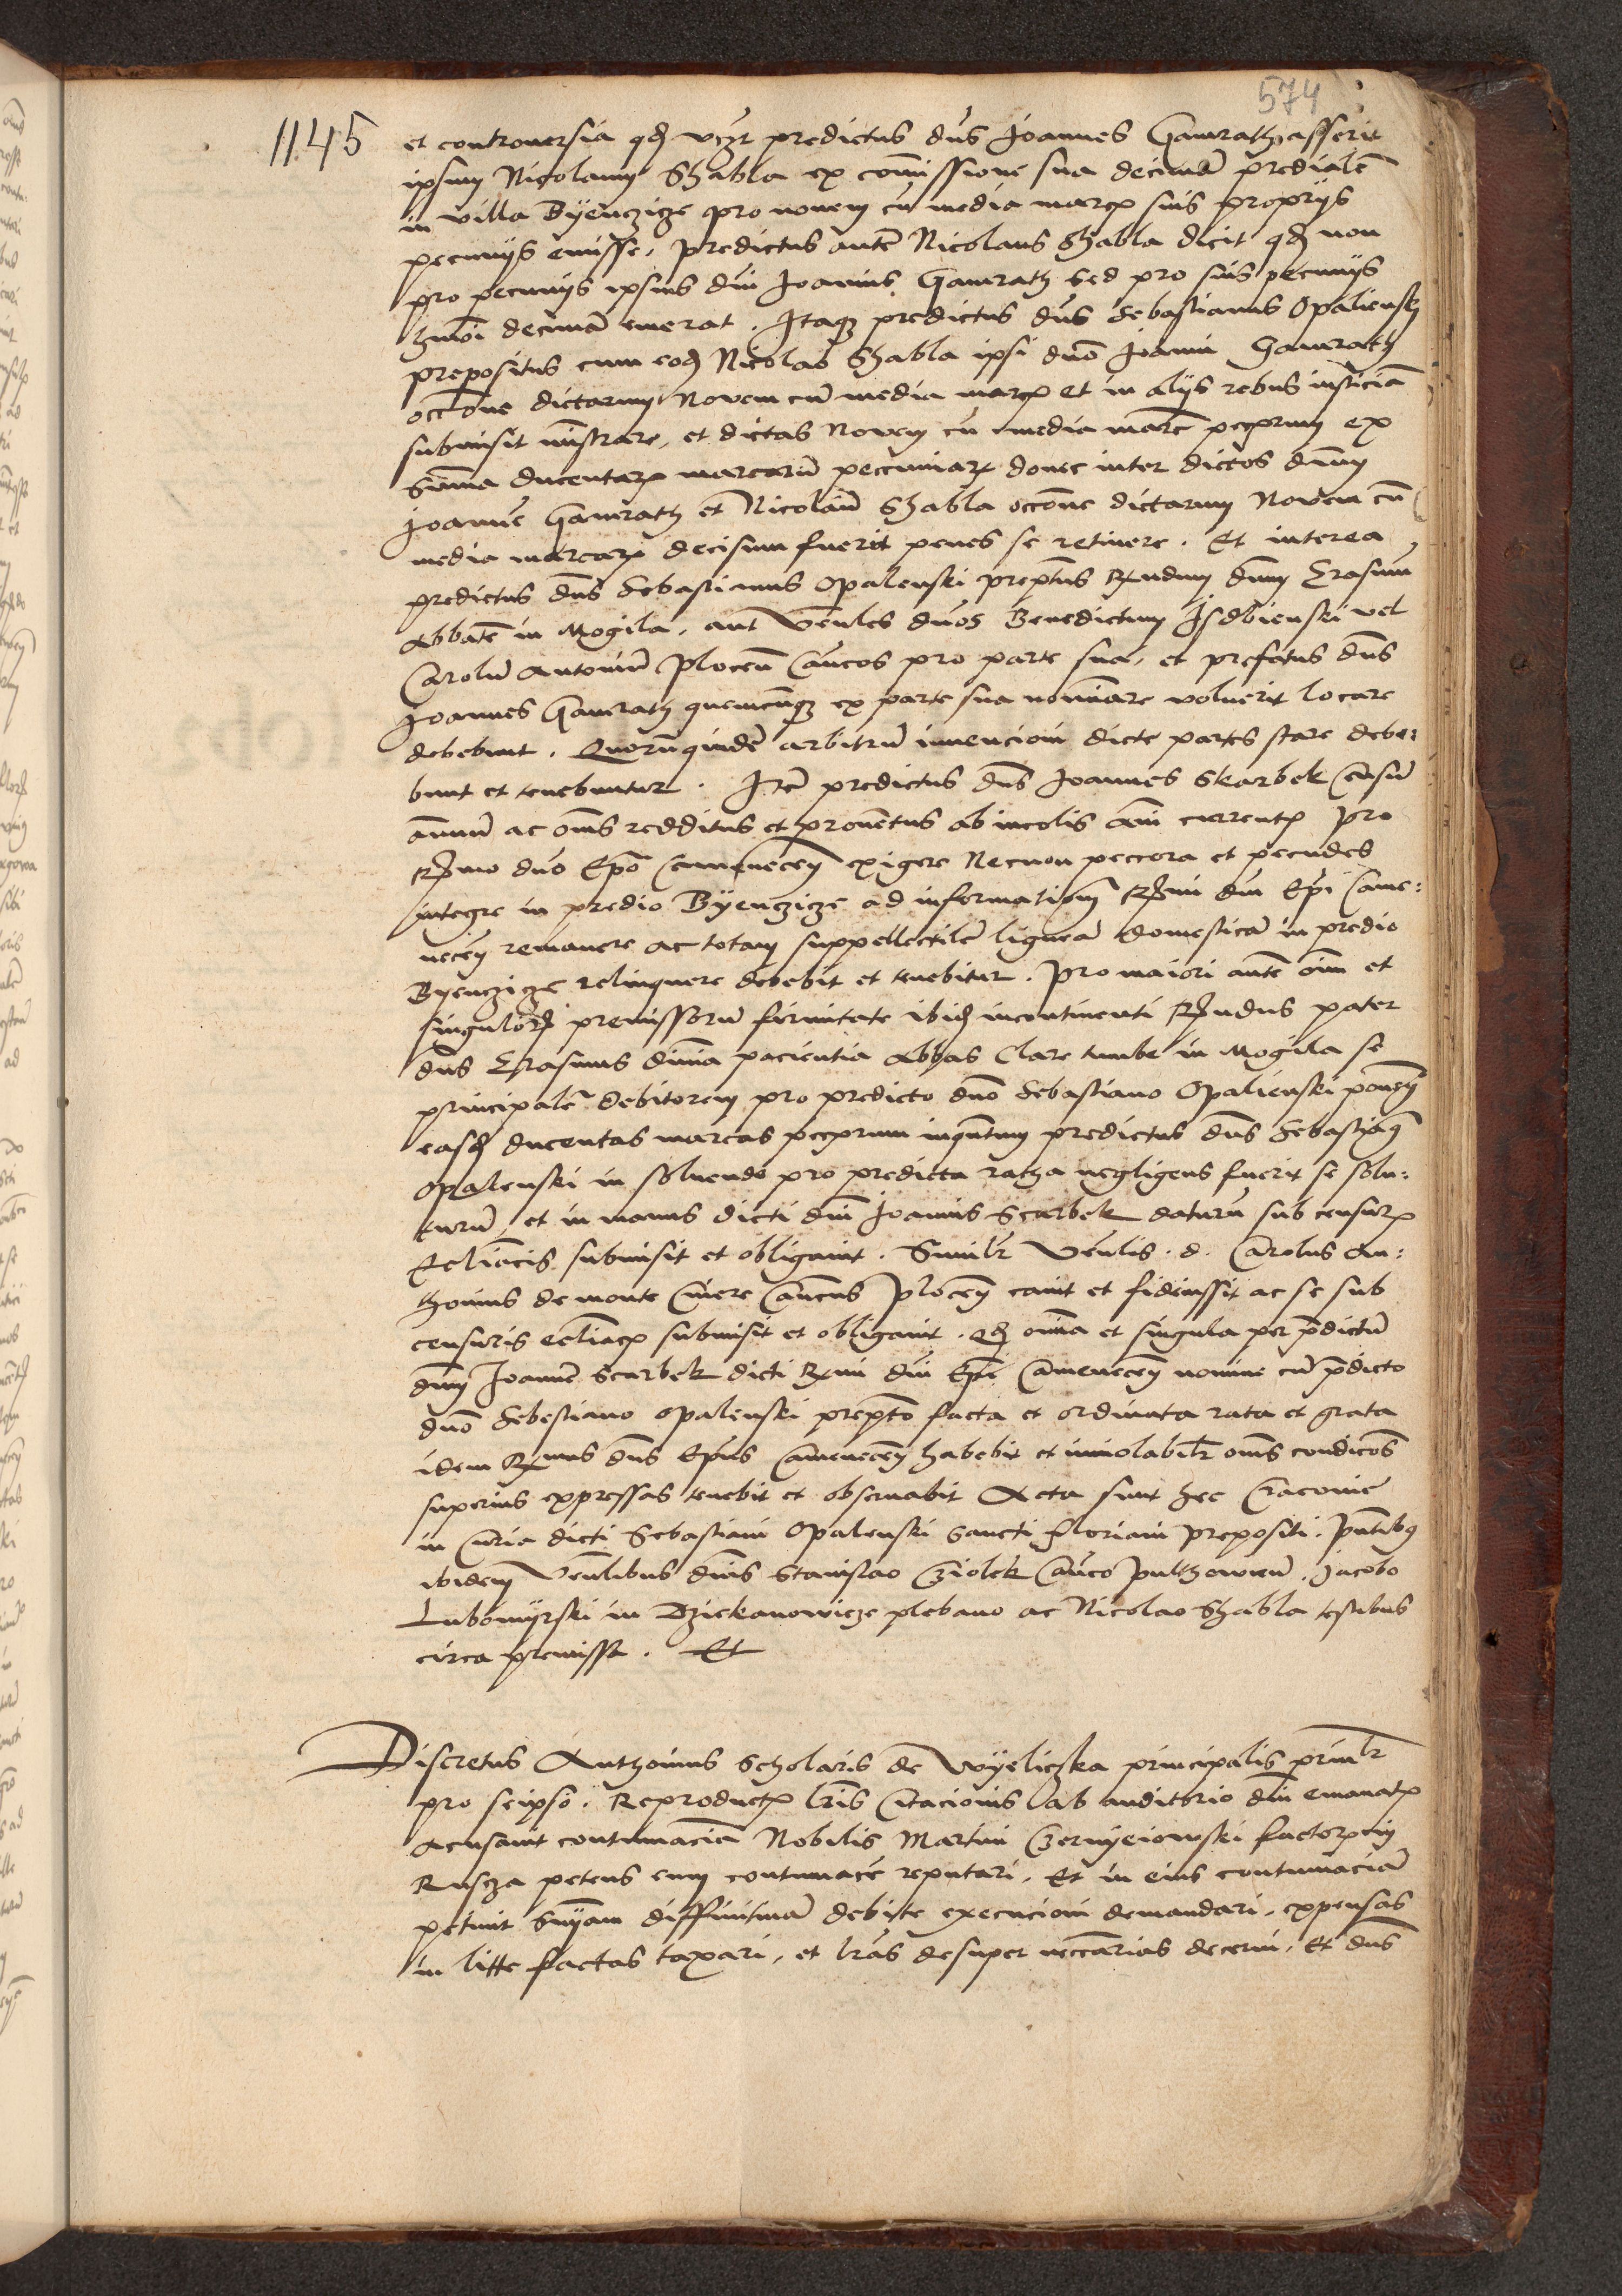 574
1145 et controversia qd vczt predictus dns Joannes Gamrath asserit
ipsum Nicolaum Shabla ex comissione sua decimā predialē
in villa Byenczicze pro novem cū media marcis suis proprijs
pecunijs emisse, predictus autē Nicolaus Shabla dicit qd non
pro pecunijs ipsius dni Joannis Gamrath sed pro suis pecunijs
hmōi decimā emerat. Itaqz predictus dns Sebastianus Opaliensky
prepositus cum eod Nicolao Shabla ipsi dno Joanni Gamrath
occōne dictarum Novem cū media marcis et in alijs rebus iusticiā
submisit ministrare, et dictas Novem cū media marc pccprum ex
summa ducentarz marcarū pecuniarz donec inter dictos dnm
Joannē Gamrath et Nicolaū Shabla occōne dictarum Novem cū
media marcarz decisum fuerit penes se retinere. Et interea
predictus dns Sebastianus Opalenski preptus Rndum dnm Erasmū
Abbatē in Mogila, aut venles dnos Benedictum Isdbienski vel
Carolū Antoniū Plocen Canicos pro parte sua, et prefatus dns
Joannes Gamrath quemcūqz ex parte sua nominare voluerit locare
debebunt. Quorū quidē arbitrū invencioni dicte partes stare debe:
bunt et tenebuntur. Itē predictus dns Joannes Skarbek Censū
annuū ac omnes redditus et proventus ab incolis anni currentis pro
Rmo dno Epo Camenecen exigere Necnon peccora et pecudes
integre in predio Byenczicze ad informationem Rmi dni Epi Came:
necen remanere ac totam suppellectilē ligneā domesticā in predio
Byenczicze relinquere debebit et tenebitur. Pro maiori autē oīm et
singulorz premissorū firmitate ibid incontinenti Rndus pater
dns Erasmus divina paciencia Abbas Clare tumbe in Mogila se
principalē debitorem pro predicto dno Sebastiano Opalienski ponens
easd ducentas marcas pccprum inquantum predictus dns Sebastianus
Opalenski in solvendo pro predicta ratha negligens fuerit se solu:
turū, et in manus dicti dni Joannis Scarbek daturū sub censuris
Ecclīacis submisit et obligavit. Similr Venlis. d. Carolus An:
thonius de monte Cinere Canicus Plocen cavit et fideiussit ac se sub
censuris eccliacis submisit et obligavit. qd omnia et singula per pdictū
dnm Joannē Scarbek dicti Rmi dni Epi Camenecen nomine cū pdicto
dno Sebestiano Opalenski prepto facta et ordinata rata et grata
idem Rmus dns Epus Camenecen habebit et inviolabilr omnes condicōes
superius expressas tenebit et observabit Acta sunt hec Cracovie
in Curia dicti Sebastiani Opalenski Sancti floriani prepositi. Pntibus
ibidem Venlibus dnis Stanislao Cziolek Canico Pulthovien. Jacobo
Lubomyrski in Dziekanowicze plebano ac Nicolao Shabla testibus
circa premissa. Et
Discretus Anthonius Scholaris de Wyeliczka principalis prinlr
pro seipso. Reproductis lris Citacionis ab auditorio dni emanatis
acusavit contumaciā Nobilis Martini Czernyeiowski factoris in
Ruscza petens eum contumacē reputari. Et in eius contumaciā
petivit snyam diffinitivā debite execucioni demandari, expensas
in litte factas taxari, et lras desuper neccarias decerni. Et dns